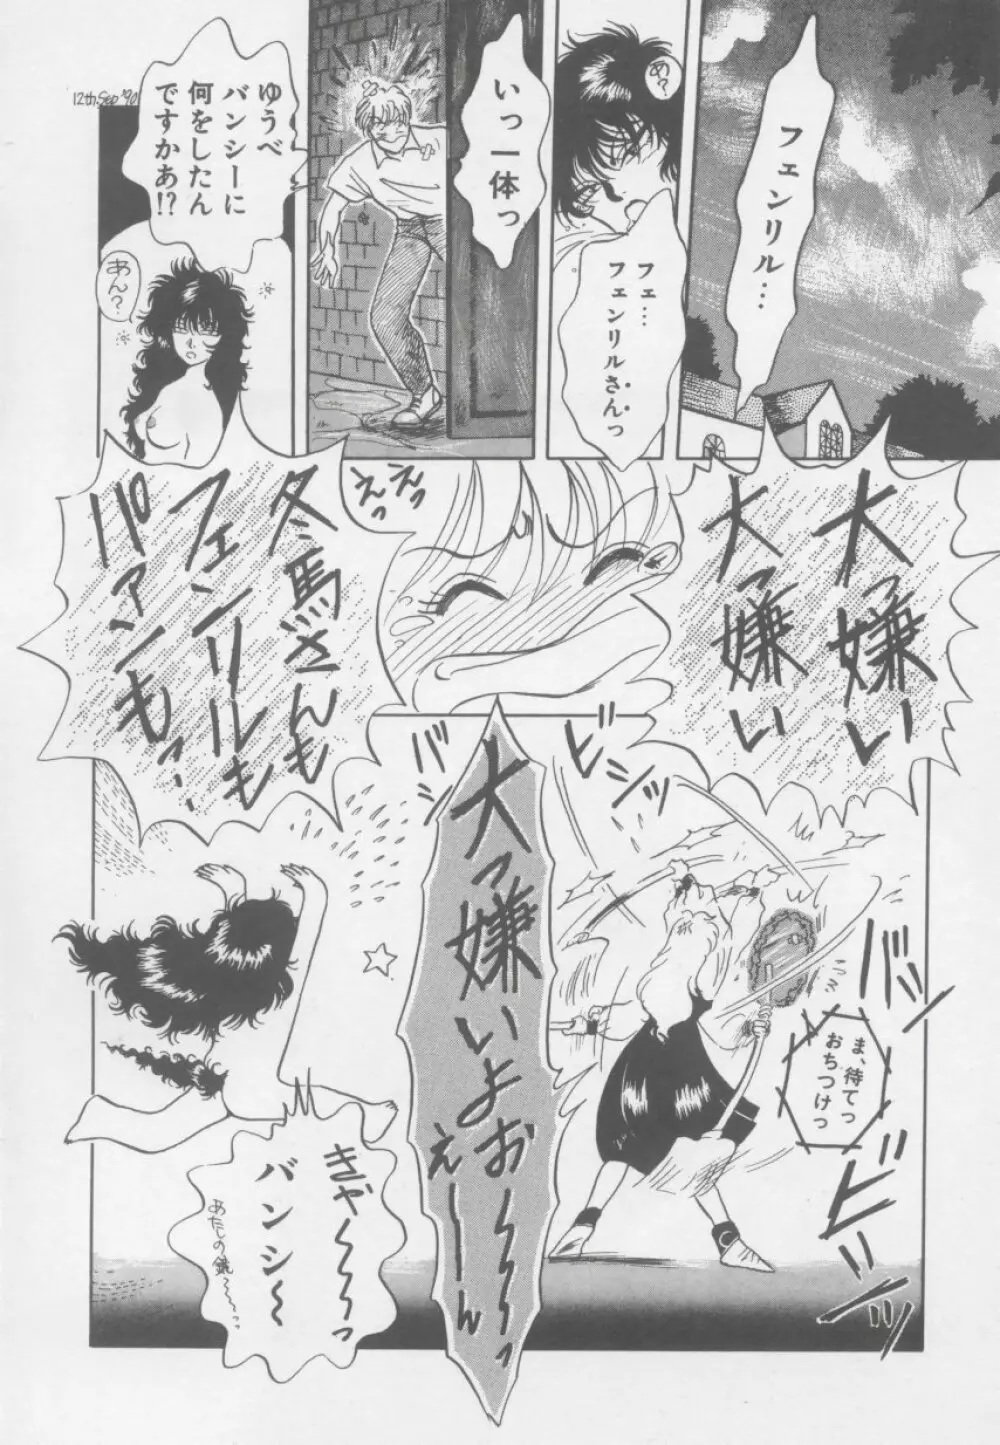 フェンリル…
あ?
フェ…
フェンリルさんっ
いっ一体っ
ゆうべ
バンシーに
何をしたん
ですかあ!?
12th.Sep '90
あん?
大っ嫌い
大っ嫌い
えっ
えっ
冬馬さんも
フェンリルも
バァンも…
ビシッ
バシ
大っ嫌いよお〜〜〜っ
え――ん
バシッ
ま、待てっ
おちつけっ
ビシッ
きゃ〜〜〜っ
バンシ〜
あたしの鏡〜〜…